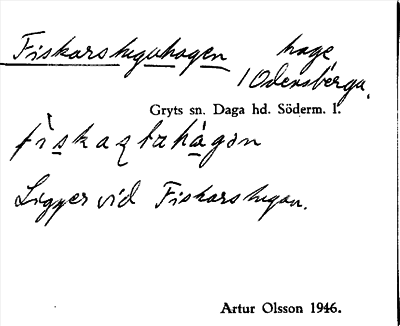 Fiskarstuguhagen hage
i Odensberga.
Gryts sn. Daga hd. Söderm. l.
Ligger vid Fiskarstugan.
Artur Olsson 1946.